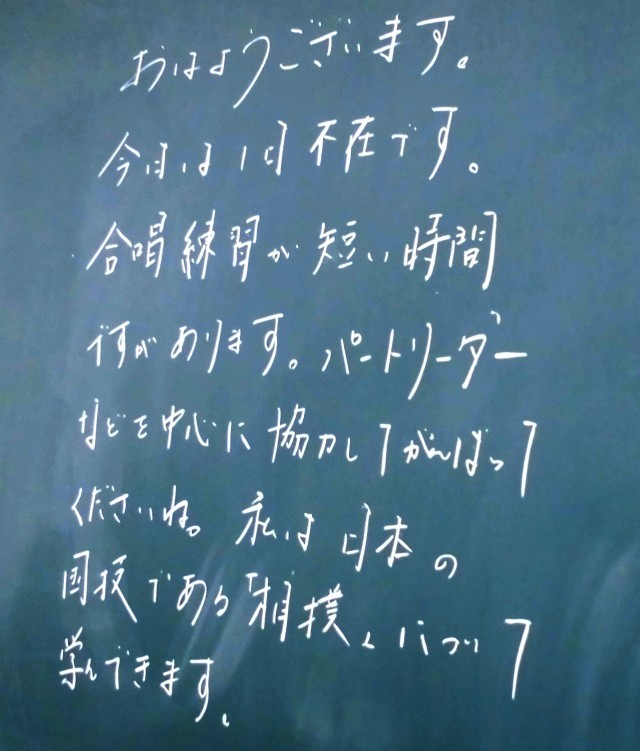 おはようございます。
今日は1日不在です。
合唱練習が短い時間
ですがあります。パートリーダー
などを中心に協力してがんばって
くださいね。私は日本の
国技である「相撲」について
学んできます。